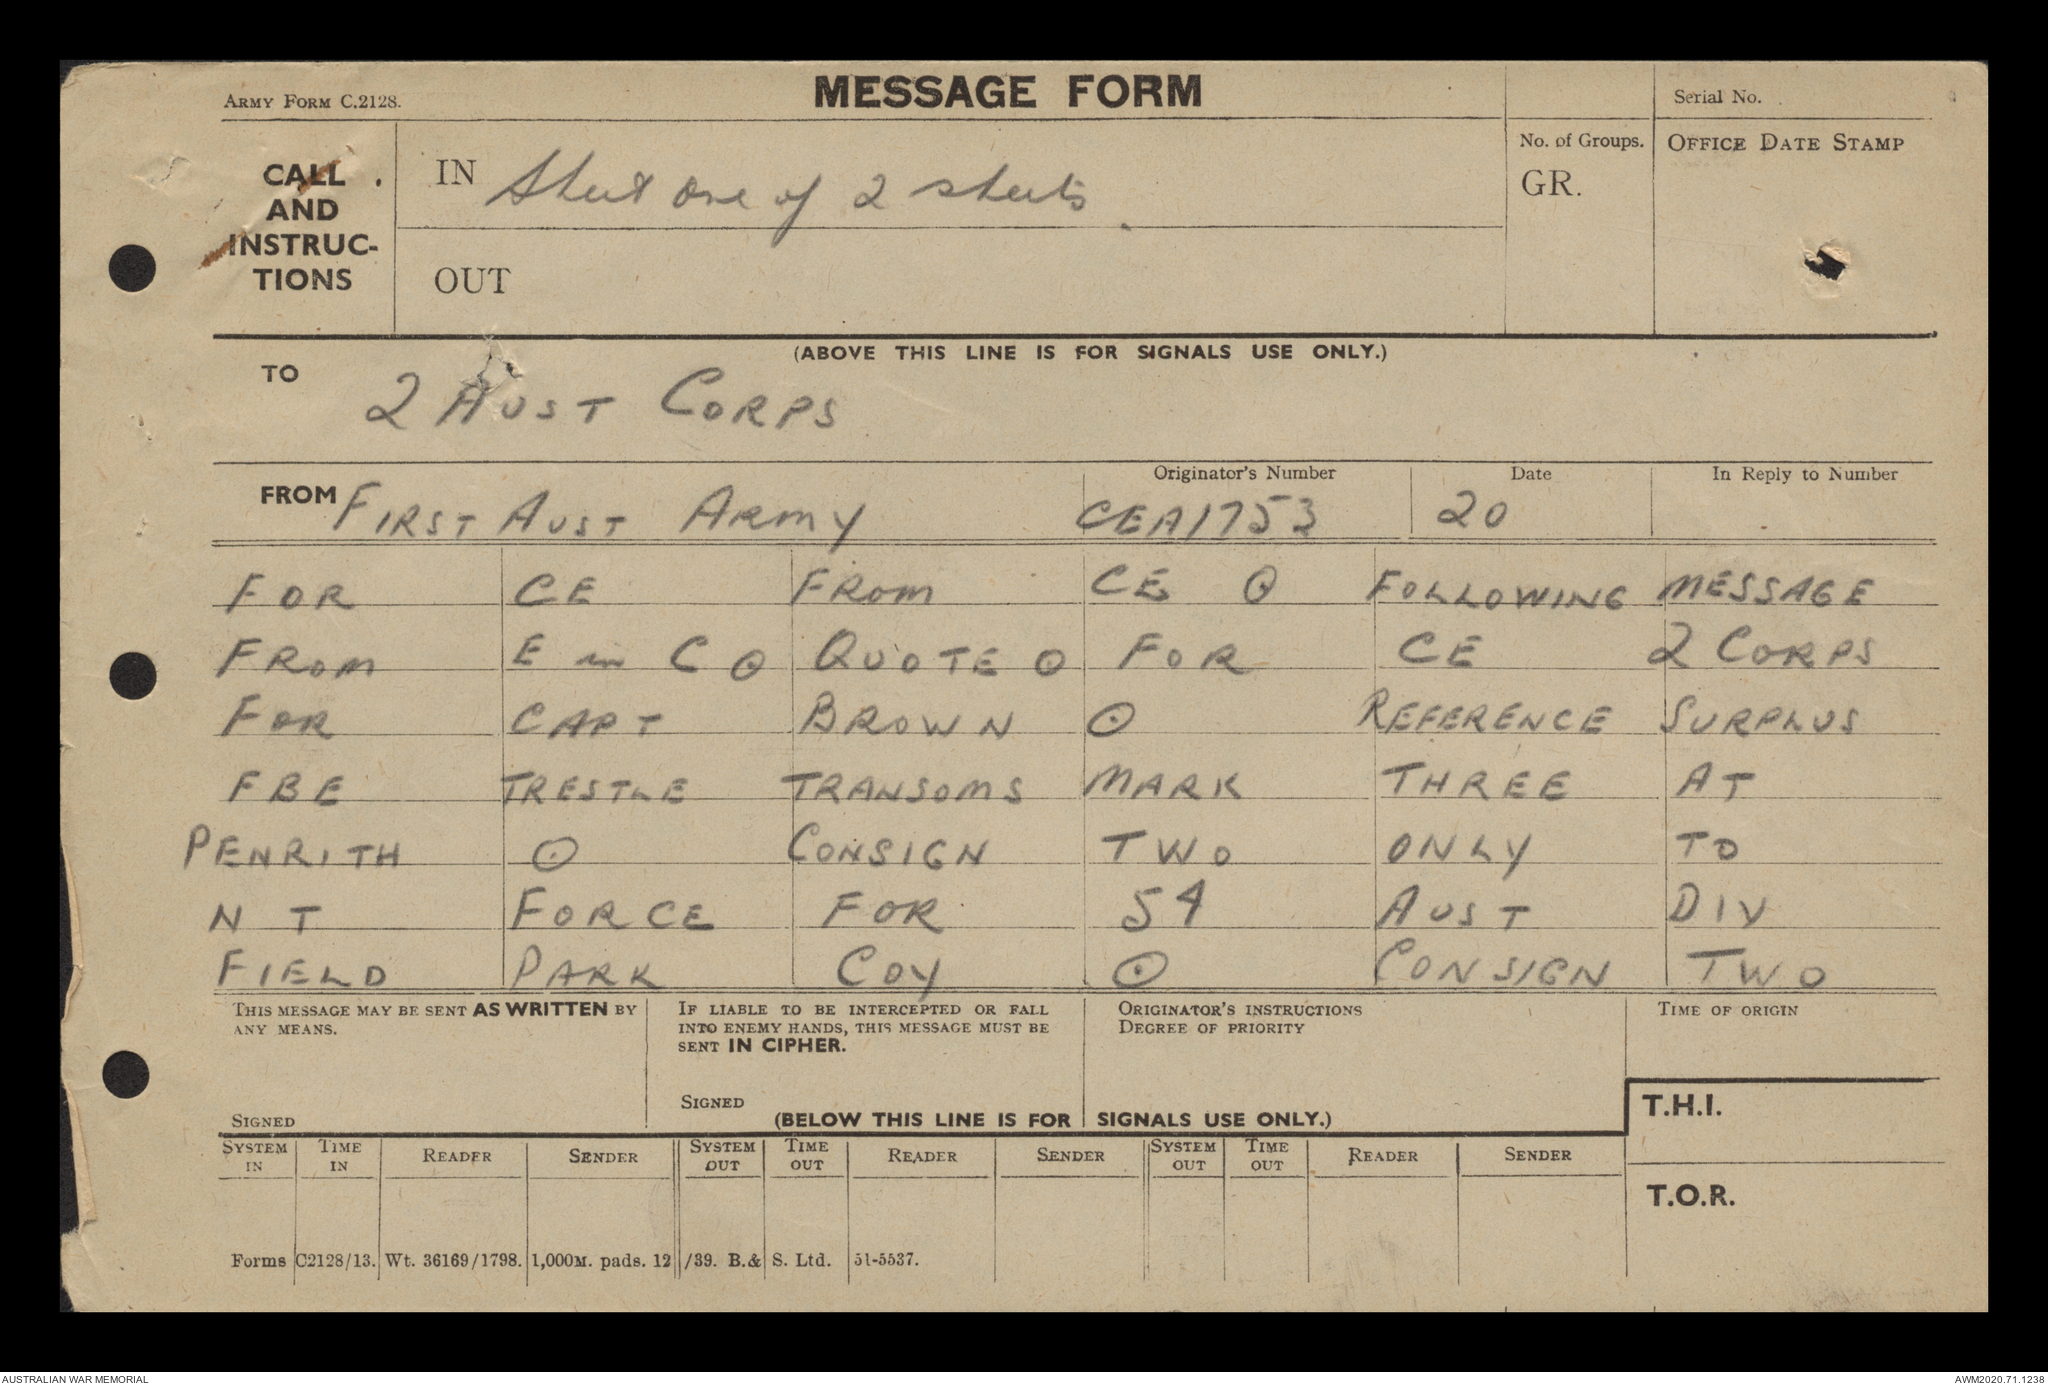 MESSAGE FORM
ARMY FORM C.2128.
Serial No.
CALL AND INSTRUC-TIONS
IN Sheet one of 2 sheets
No. of Groups.
GR.
OFFICE DATE STAMP
OUT
(ABOVE THIS LINE IS FOR SIGNALS USE ONLY.)
TO 2 AUST CORPS
FROM FIRST AUST ARMY
Originator's Number CEA1753
Date 20
In Reply to Number
FOR CE FROM CE ⊙ FOLLOWING MESSAGE
FROM E in C ⊙ QUOTE ⊙ FOR CE 2 CORPS
FOR CAPT BROWN ⊙ REFERENCE SURPLUS
FBE TRESTLE TRANSOMS MARK THREE AT
PENRITH ⊙ CONSIGN TWO ONLY TO
N T FORCE FOR 54 AUST DIV
FIELD PARK COY ⊙ CONSIGN TWO
THIS MESSAGE MAY BE SENT AS WRITTEN BY
ANY MEANS.
SIGNED
IF LIABLE TO BE INTERCEPTED OR FALL
INTO ENEMY HANDS, THIS MESSAGE MUST BE
SENT IN CIPHER.
SIGNED
ORIGINATOR'S INSTRUCTIONS
DEGREE OF PRIORITY
TIME OF ORIGIN
(BELOW THIS LINE IS FOR SIGNALS USE ONLY.)
T.H.I.
SYSTEM IN TIME IN READER SENDER SYSTEM OUT TIME OUT READER SENDER SYSTEM OUT TIME OUT READER SENDER
T.O.R.
Forms C2128/13. Wt. 36169/1798. 1,000M. pads. 12/39. B.& S. Ltd. 51-5537.
AUSTRALIAN WAR MEMORIAL
AWM2020.71.1238